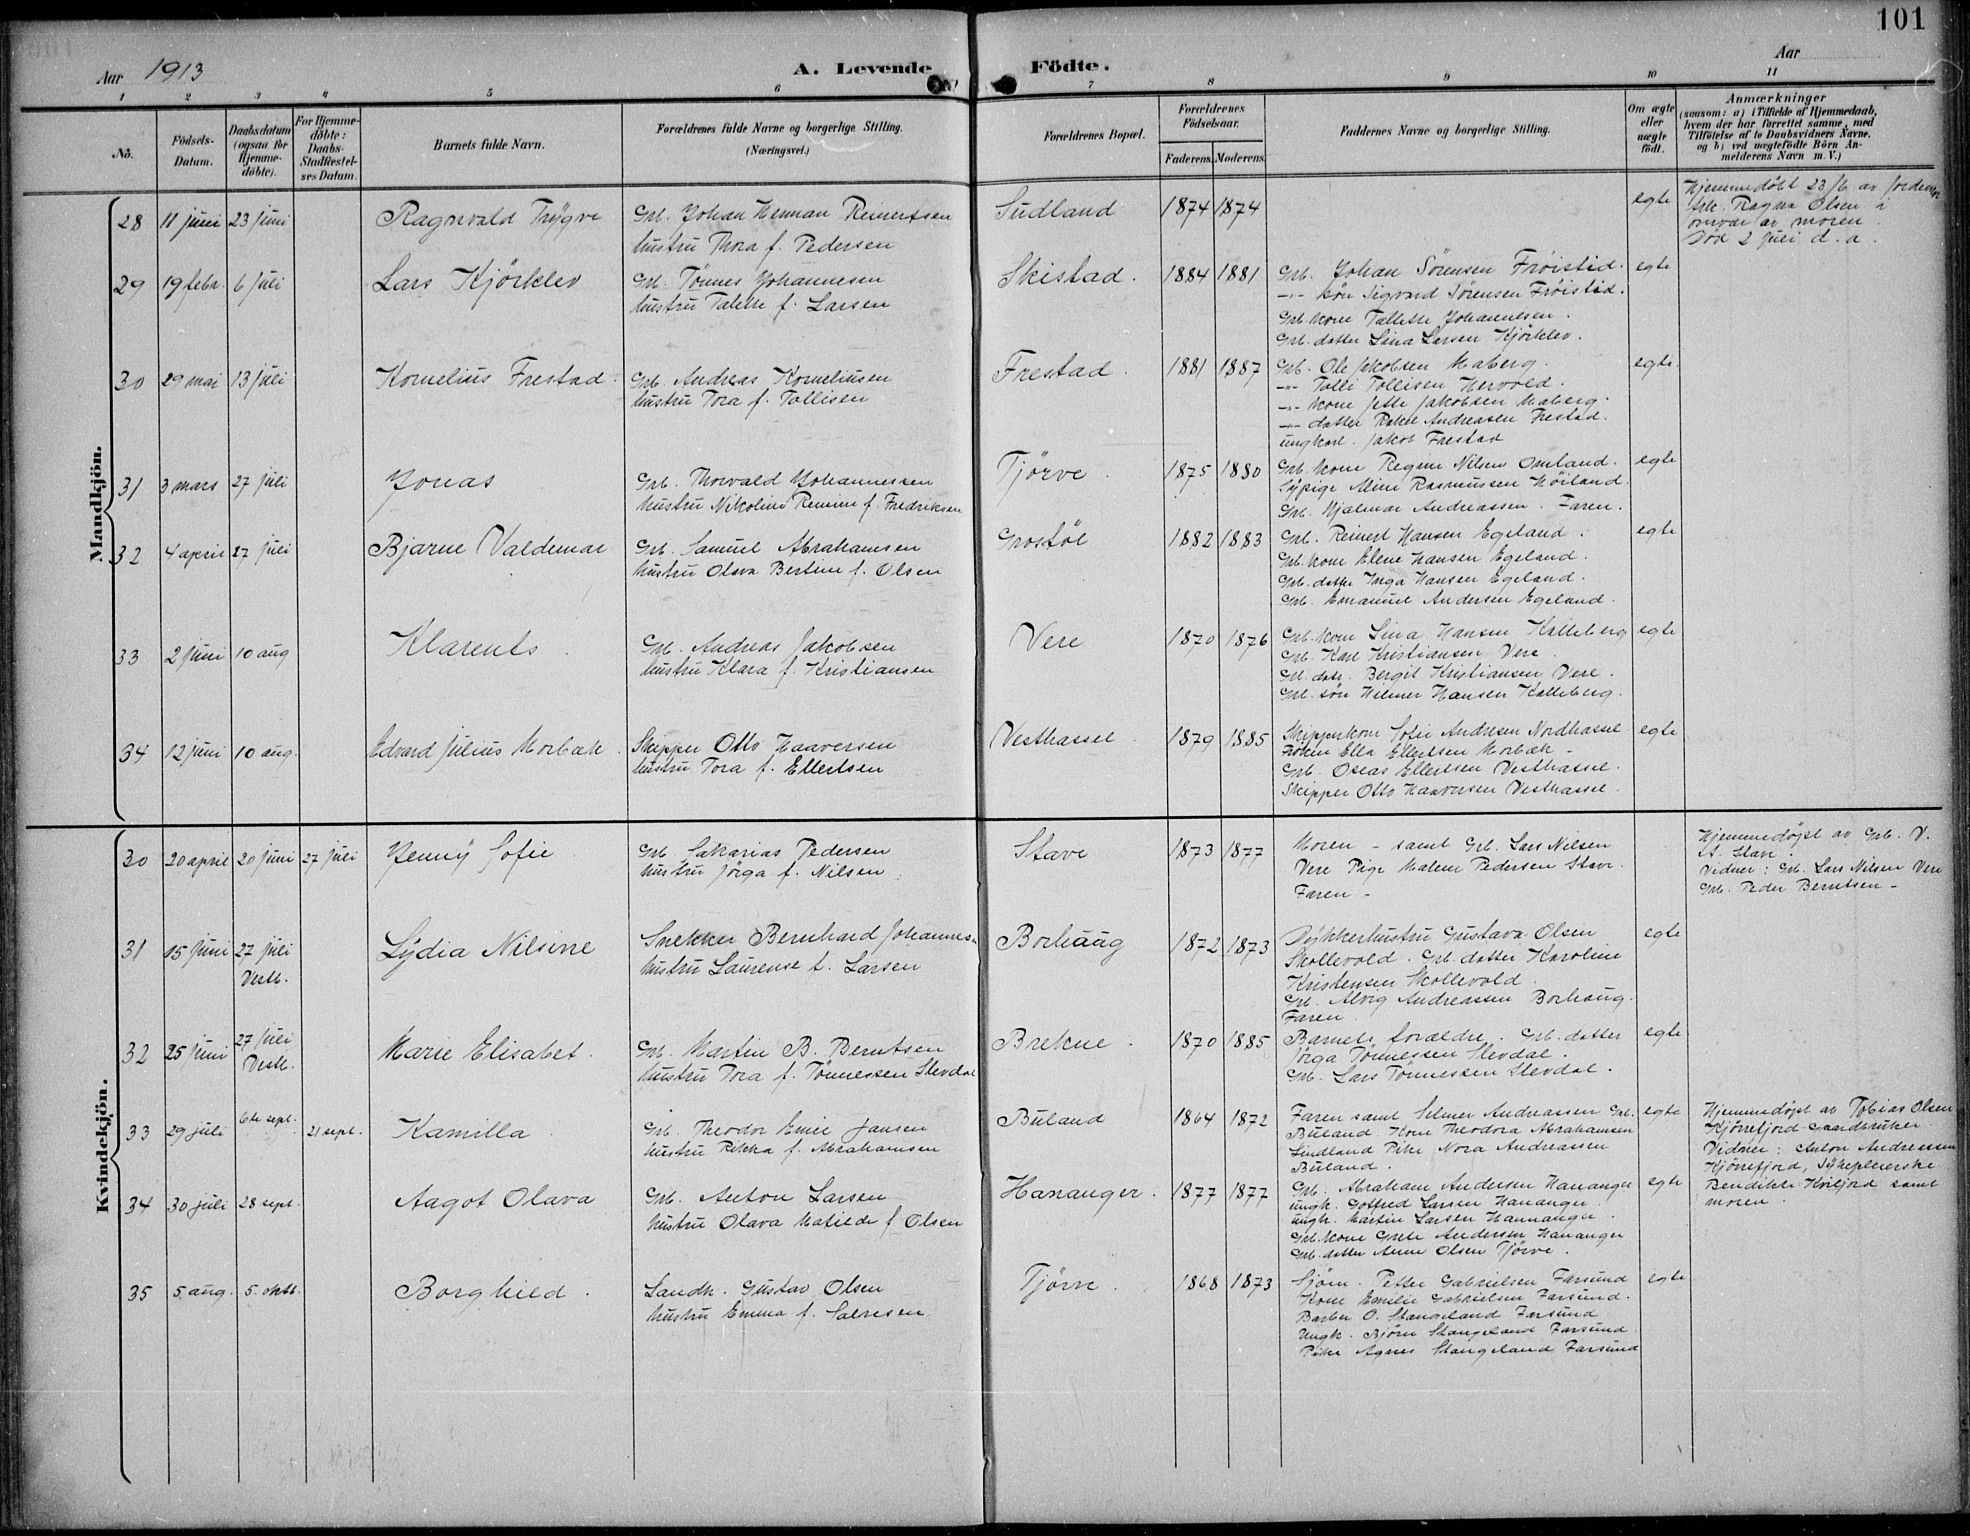 101
Aar 1913
A. Levende Födte.
Aar
1 2 3 4 5 6 7 8 9 10 11
No.
Födsels-Datum.
Daabsdatum (ogsaa for Hjemme-döbte).
For Hjemme-döbte: Daabs-Stadfæstel-ses Datum.
Barnets fulde Navn.
Forældrenes fulde Navne og borgerlige Stilling.
(Næringsvei.)
Forældrenes Bopæl.
Forældrenes Födselsaar.
Faderens. Moderens.
Faddernes Navne og borgerlige Stilling.
Om ægte eller uægte födt.
Anmærkninger
(saasom: a) i Tilfælde af Hjemmedaab, hvem der har forrettet samme, med Tilföielse af to Daabsvidners Navne, og b) ved uægtefödte Börn An-melderens Navn m. V.)
Mandkjön.
28 11 juni 23 juni Ragnvald Trygve
Grb. Johan Herman Reinertsen
hustru Thora f. Pedersen
Sudland 1874 1874 egte
Hjemmedøbt 23/6 av jordemor
frk. Ragna Olsen i
nærvær av moren.
Død 2 juli d. a.
29 19 febr. 6 juli Lars Kjörklev
Grb. Tönnes Johannesen
hustru Talette f. Larsen
Skistad. 1884 1881 egte
Grb. Johan Sörensen Fröistid.
-"- sön Sigvard Sörensen Fröistid.
Grb. kone Tallette Johannesen.
Grb. datter Sina Larsen Kjörklev.
30 29 mai 13 juli Kornelius Frestad.
Grb. Andreas Korneliusen
hustru Tora f. Tollisen
Frestad. 1881 1887 egte
Grb. Ole Jakobsen Maberg.
-"- Tolli Tollisen Hervold.
-"- kone Jette Jakobsen Maberg.
-"- datter Rakel Andreasen Frestad.
ungkarl. Jakob Frestad
31 3 mars 27 juli Jonas
Grb. Thorvald Johannessen
hustru Nikoline Remine f. Fredriksen
Tjörve. 1875 1880 egte
Grb. kone Regine Nilsen Omland.
Sypige Aline Rasmussen Höiland.
Grb. Hjalmar Andreassen. Faren.
32 4 april 27 juli Bjarne Valdemar
Grb. Samuel Abrahamsen
hustru Olava Bertine f. Olsen
Grostöl 1882 1883 egte
Grb. Reinert Hansen Egeland.
Grb. kone Elene Hansen Egeland.
Grb. datter Inga Hansen Egeland.
Grb. Emanuel Andersen Egeland.
33 2 juni 10 aug Klarents.
Grb. Andreas Jakobsen
hustru Klara f. Kristiansen
Vere 1870 1876 egte
Grb. kone Sina Hansen Kalleberg
Grb. Karl Kristiansen Vere.
Grb. datr. Bergit Kristiansen Vere.
Grb. sön Helmer Hansen Kalleberg.
34 12 juni 10 aug. Edvard Julius Morbæk.
Skipper Otto Haaversen
hustru Tora f. Ellertsen
Vesthassel. 1879 1885 egte
Skipperkone Sofie Andresen Nordhassel
Fröken Ella Ellertsen Morbæk -
Grb. Oseas Ellertsen Vesthassel.
Skipper Otto Haaversen Vesthassel.
Kvindekjön.
30 20 april 20 juni 27 juli Jenny Sofie
Grb. Sakarias Pedersen
hustru Jörga f. Nilsen
Stave 1873 1877
Moren - samt Grb. Lars Nilsen
Vere Pige Malene Pedersen Stave.
Faren -
Hjemmedöpt av Grb. V.
A. Stave.
Vidner: Grb. Lars Nilsen Vere
Grb. Peder Berntsen -
31 15 juni 27 juli Vestb. Lydia Nilsine
Snekker Bernhard Johannesen
hustru Laurense f. Larsen
Borhaug 1872 1873 egte
Dykkerhustru Gustava Olsen
Skollevold. Grb. datter Karoline
Kristensen Skollevold.
Grb. Alvig Andreassen Borhaug.
Faren.
32 25 juni 27 juli Vestb. Marie Elisabet.
Grb. Martin B. Berntsen
hustru Tora f. Tönnessen Slevdal
Brekne. 1870 1885 egte
Barnets forældre. Grb. datter
Jörga Tönnessen Slevdal.
Grb. Lars Tönnessen Slevdal.
33 29 juli 6te sept. 21 sept. Kamilla.
Grb. Theodor Emil Jansen
hustru Rikka f. Abrahamsen
Buland 1864 1872 egte
Faren samt Selmer Andreassen Grb.
Buland. Kone Theodora Abrahamsen
Lindland Pike Nora Andreassen
Buland.
Hjemmedöpt av Tobias Olsen
Kjörrefjord gaardbruker.
Vidner: Anton Andreassen
Kjörrefjord, Sykepleierske
Bendikte Höifjord samt
moren.
34 30 juli 28 sept. Aagot Olava
Grb. Anton Larsen
hustru Olava Matilde f. Olsen
Hananger. 1877 1877 egte
Grb. Abraham Andersen Hananger
ungk. Gotfred Larsen Hananger.
ungk. Martin Larsen Hannanger.
Grb. kone Grete Andersen Hananger
Grb. datter Anne Olsen Tjörve.
35 5 aug. 5 oktb. Borghild.
Landh. Gustav Olsen
hustru Emma f. Salvesen
Tjörve. 1868 1873 egte
Sjöm. Petter Gabrielsen Farsund
Kone Emilie Gabrielsen Farsund.
Barber O. Stangeland Farsund
Ungk. Björn Stangeland Farsund
Pike Agnes Stangeland Farsund